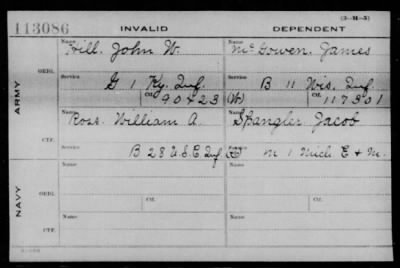 (3-M-5)
113086 INVALID DEPENDENT
ARMY
ORIG.
Name Hill, John W. Name McGowen, James
Service G 1 Ky. Inf. Service B 11 Wis. Inf.
Ctf. 90423 (W) Ctf. 117301
CTF.
Name Ross, William A. Name Spangler, Jacob
Service B 28 U.S.C. Inf. Service M 1 Mich E & M.
NAVY
ORIG.
Name Ctf. Name Ctf.
CTF.
Name Name